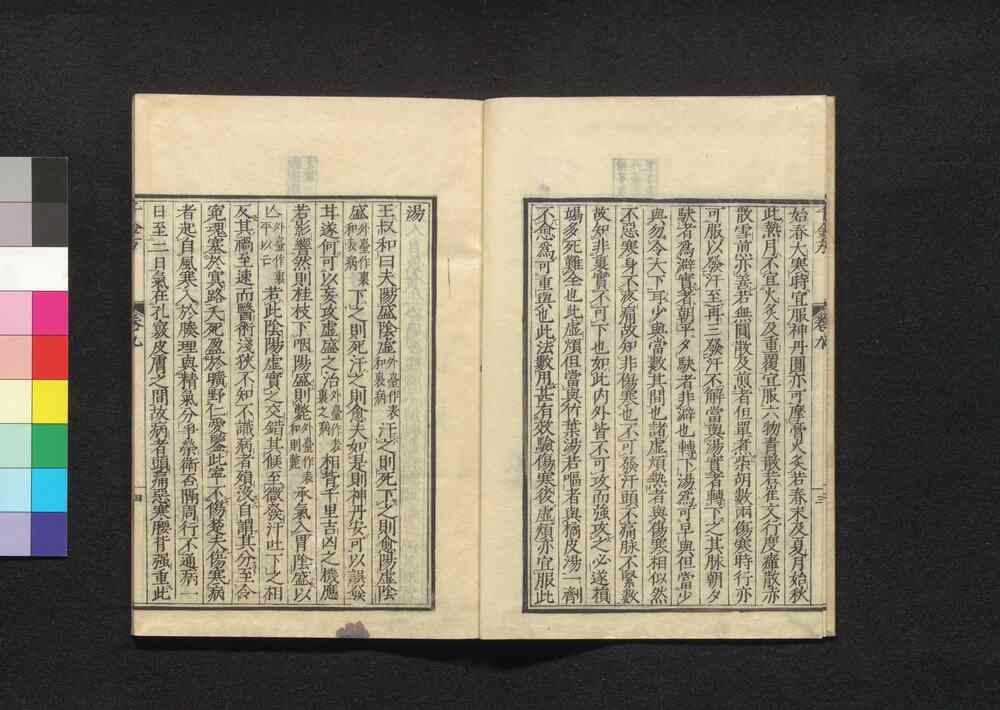 始春大寒時宜服神丹圓亦可摩膏火炙若春末及夏月始秋
此熱月不宜火炙及重覆宜服六物青散若崔文行度瘴散亦
散雪前亦善若無圓散及煎者但單煮柴胡數兩傷寒時行亦
可服以發汗至再三發汗不解當與湯實者轉下之其脉朝夕
駃者為澼實者朝平夕駃者非澼也轉下湯為可早與但當少
與勿令大下耳少與當數其間也諸虛煩熱者與傷寒相似然
不惡寒身不疼痛故知非傷寒也不可發汗頭不痛脉不緊數
故知非裏實不可下也如此內外皆不可攻而強攻之必遂損
竭多死難全也此虛煩但當與竹葉湯若嘔者與橘皮湯一劑
不愈為可重與也此法數用甚有效驗傷寒後虛煩亦宜服此
湯
王叔和曰夫陽盛陰虛外臺作表和裏病汗之則死下之則愈陽虛陰
盛外臺作裏和表病下之則死汗之則愈夫如是則神丹安可以誤發
耳遂何可以妄攻虛盛之治外臺作表裏之病相背千里吉凶之機應
若影響然則桂枝下咽陽盛則斃外臺作表和則斃承氣入胃陰盛以
亡外臺作裏平以亡若此陰陽虛實之交錯其候至微發汗吐下之相
反其禍至速而醫術淺狹不知不識病者殞沒自謂其分至令
冤魂塞於冥路夭死盈於曠野仁愛鑒此寧不傷楚夫傷寒病
者起自風寒入於腠理與精氣分爭榮衛否隔周行不通病一
日至二日氣在孔竅皮膚之間故病者頭痛惡寒腰背強重此